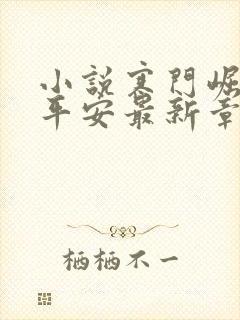 小說寒門崛
平安最新章
栖栖不一